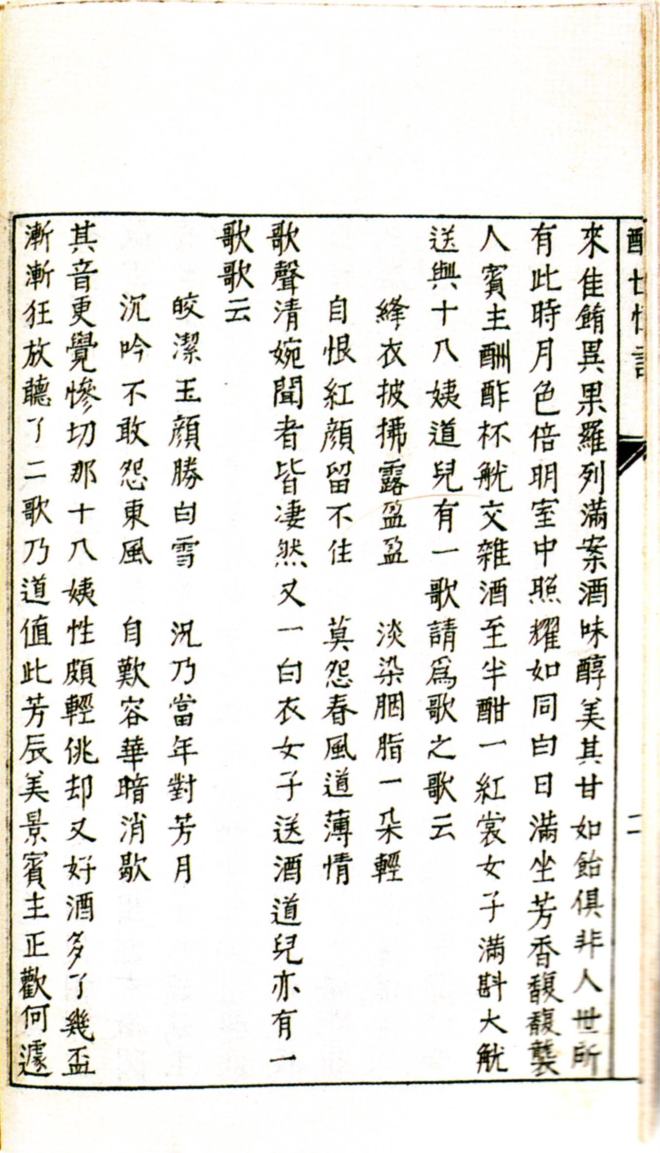 醒世恆言
二
來佳餚異果羅列滿案酒味醇美其甘如飴俱非人世所
有此時月色倍明室中照耀如同白日滿坐芳香馥馥襲
人賓主酬酢杯觥交雜酒至半酣一紅裳女子滿斟大觥
送與十八姨道兒有一歌請爲歌之歌云
絳衣披拂露盈盈　淡染胭脂一朵輕
自恨紅顏留不住　莫怨春風道薄情
歌聲清婉聞者皆淒然又一白衣女子送酒道兒亦有一
歌歌云
皎潔玉顏勝白雪　況乃當年對芳月
沉吟不敢怨東風　自歎容華暗消歇
其音更覺慘切那十八姨性頗輕佻却又好酒多了幾盃
漸漸狂放聽了二歌乃道值此芳辰美景賓主正歡何遽